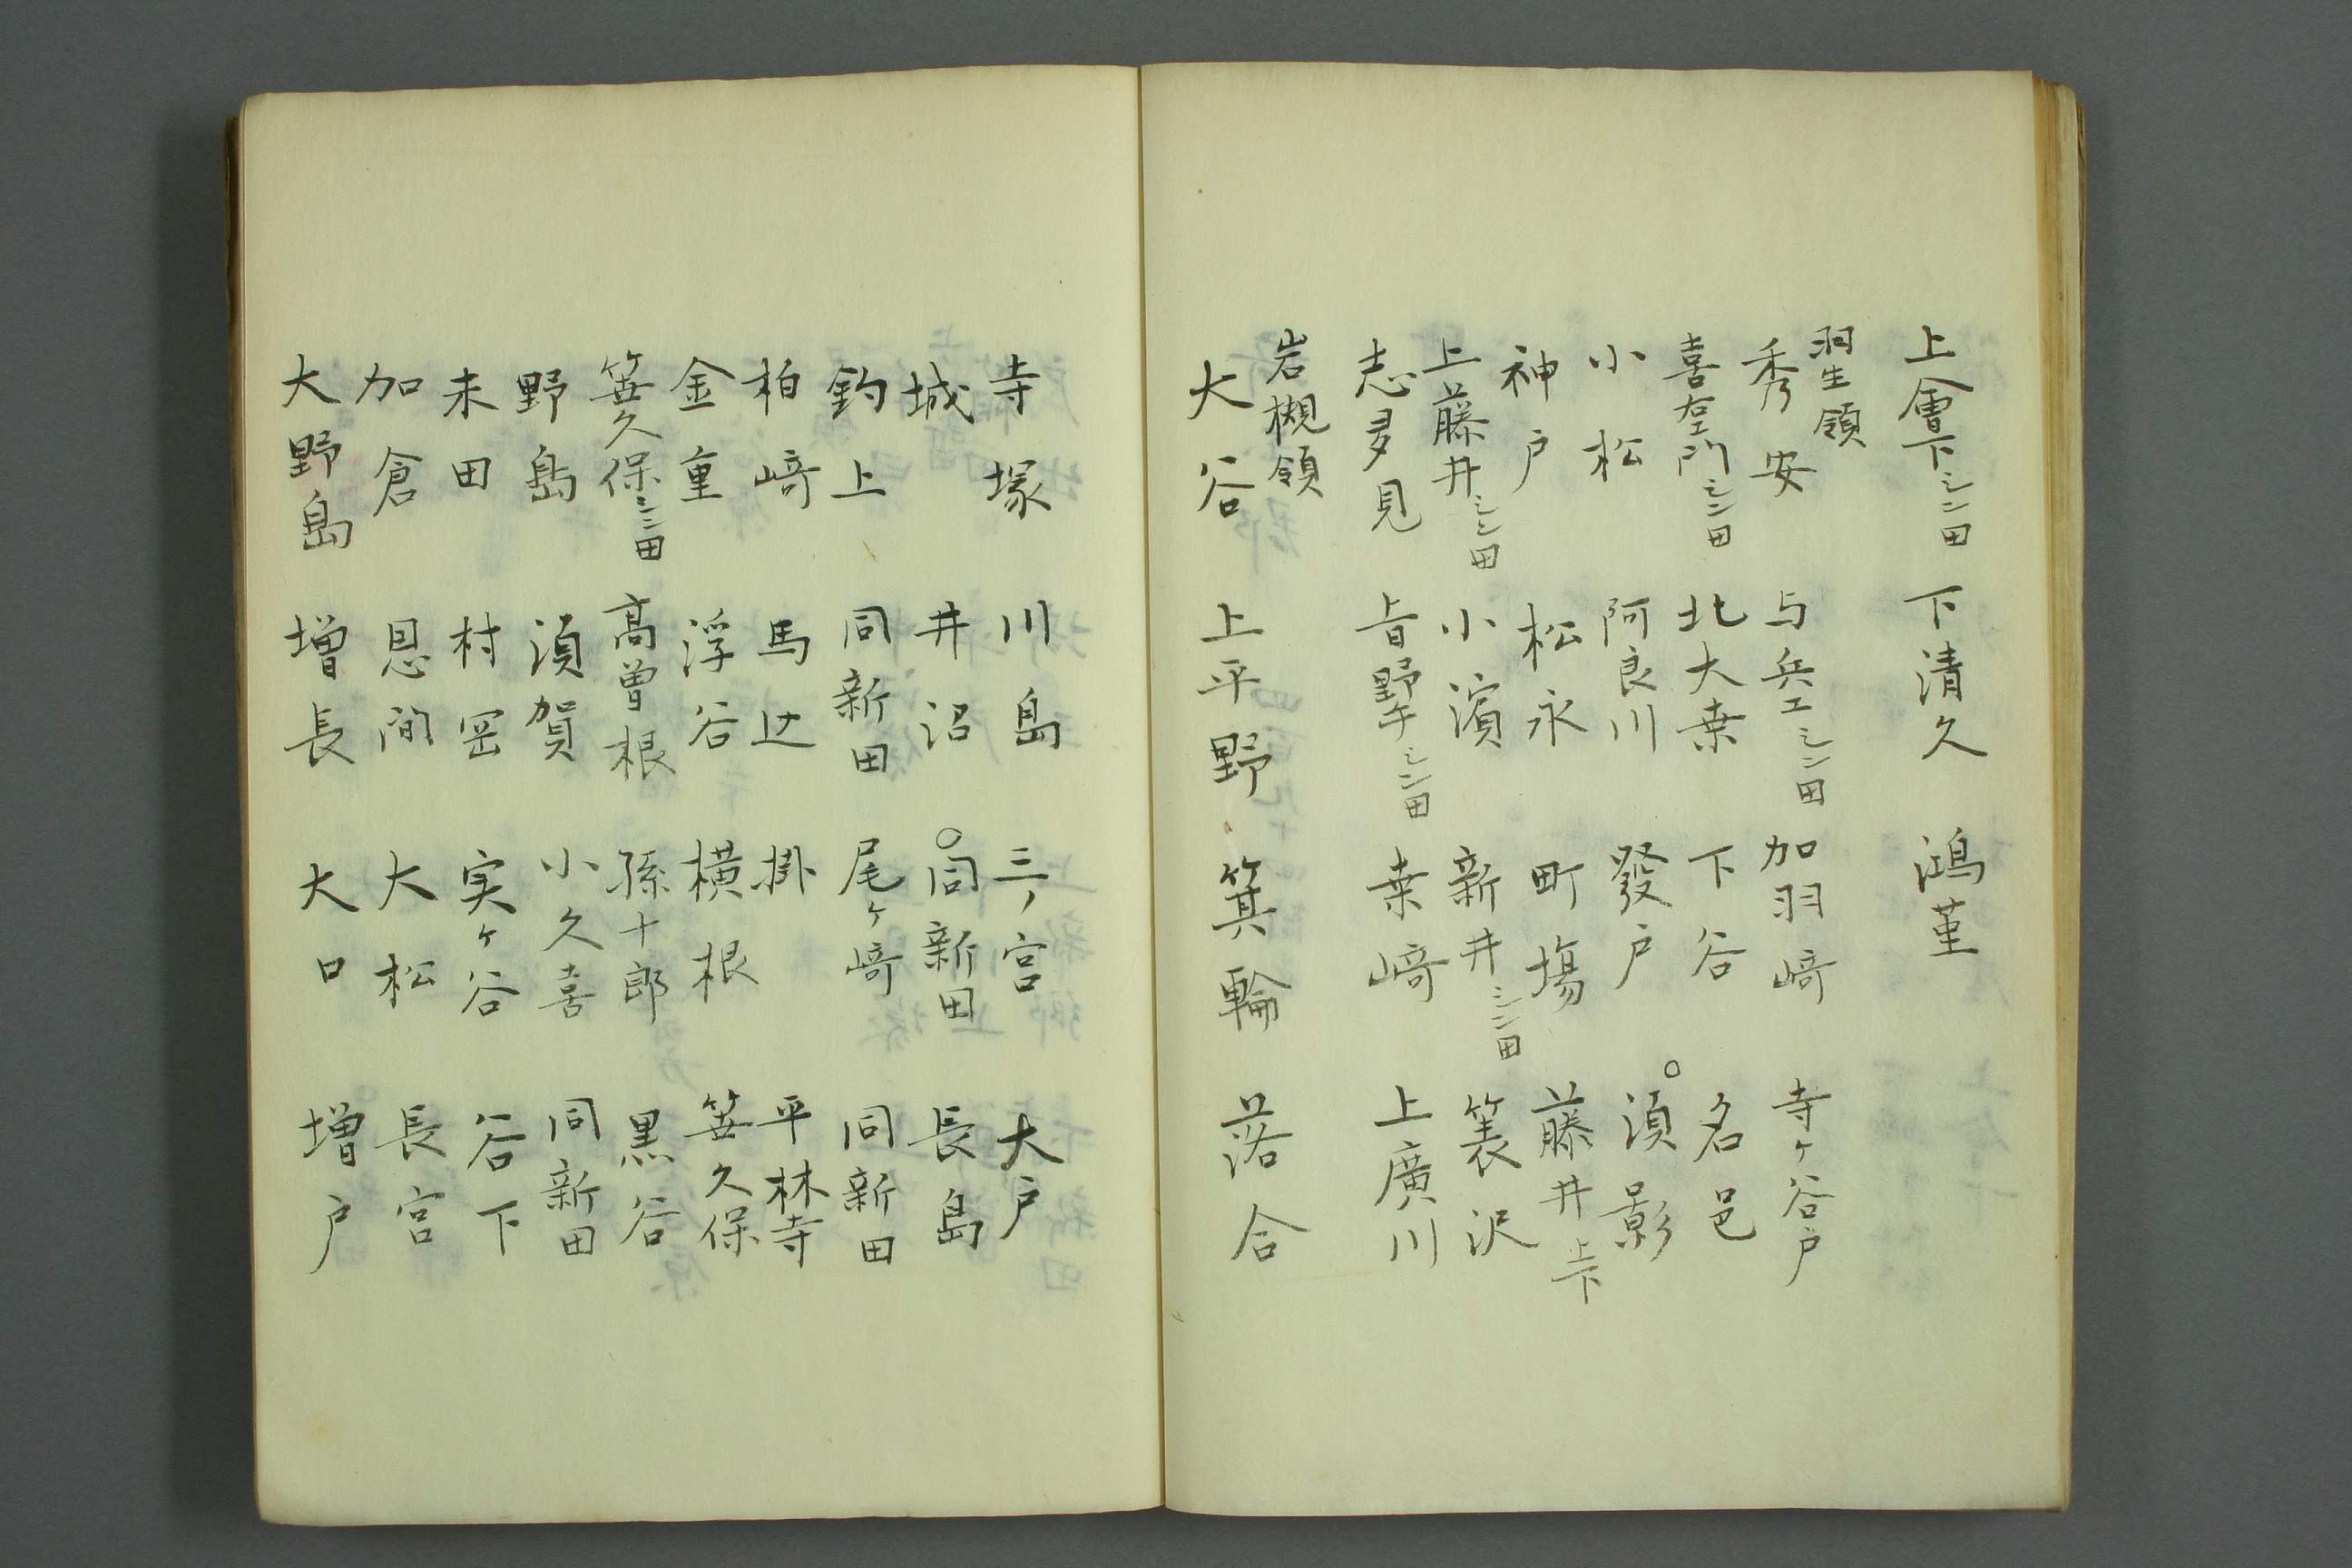 上會下シン田 下清久 鴻茎
羽生領
秀安 与兵エシン田 加羽﨑 寺ヶ谷戸
喜左門シン田 北大桒 下谷 名邑
小松 阿良川 發戸 ○須影
神戸 松永 町場 藤井上下
上藤井シン田 小濱 新井シン田 簑沢
志多見 シン田 桒﨑 上廣川
岩槻領
大谷 上平野 箕輪 落合
寺塚 川島 三ノ宮 大戸
城 井沼 ○同新田 長島
釣上 同新田 尾ヶ﨑 同新田
柏﨑 馬込 掛 平林寺
金重 浮谷 横根 笹久保
笹久保シン田 高曽根 孫十郎 黒谷
野島 須賀 小久喜 同新田
末田 村岡 実ヶ谷 谷下
加倉 恩間 大松 長宮
大野島 増長 大口 増戸